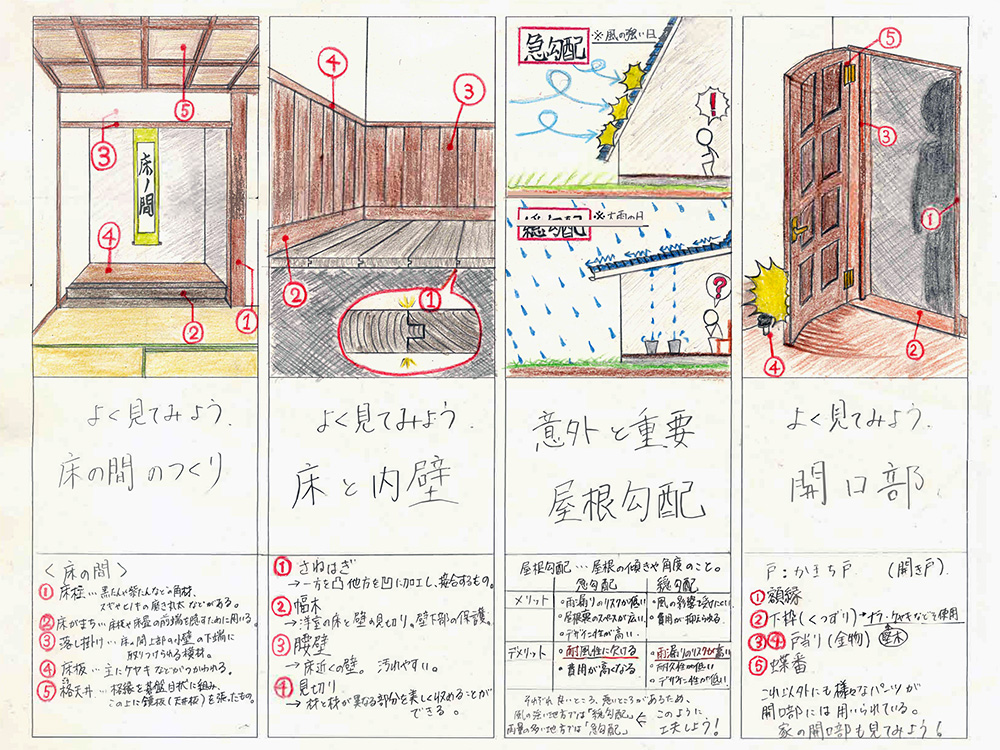 床ノ間
①
②
③
④
⑤
よく見てみよう.
床の間のつくり
<床の間>
① 床柱…黒たんや紫たんなどの角材、
スギやヒノキの磨き丸太などがある。
② 床がまち…床板や床畳の前端を隠すために用いる。
③ 落し掛け…床の間上部の小壁の下端に
取りつけられる横材。
④ 床板…主にケヤキなどがつかわれる。
⑤ 格天井…格縁を碁盤目状に組み、
この上に鏡板(天井板)を張ったもの。
①
②
③
④
よく見てみよう.
床と内壁
① さねはぎ
→一方を凸 他方を凹に加工し、接合するもの。
② 幅木
→洋室の床と壁の見切り。壁下部の保護。
③ 腰壁
→床近くの壁。汚れやすい。
④ 見切り
→材と材が異なる部分を美しく収めることが
できる。
急勾配
※風の強い日
!
緩勾配
※大雨の日
?
意外と重要
屋根勾配
屋根勾配…屋根の傾きや角度のこと。
急勾配 緩勾配
メリット
・雨漏りのリスクが低い
・屋根裏のスペースが広い.
・デザイン性が高い.
・風の影響を受けにくい
・費用が抑えられる.
デメリット
・耐風性に欠ける
・費用が高くなる
・雨漏りのリスクが高い
・耐久性が低い
・デザイン性が低い.
それぞれ良いところ、悪いところがあるため、
風の強い地方では「緩勾配」
雨量の多い地方では「急勾配」
このように
工夫しよう!
①
②
③
④
⑤
よく見てみよう.
開口部.
戸:かまち戸. (開き戸).
① 額縁
② 下枠(くつずり)→ナラ・ケヤキなどを使用
③④ 戸当り(金物)
⑤ 蝶番
これ以外にも様々なパーツが
開口部には用いられている。
家の開口部も見てみよう!